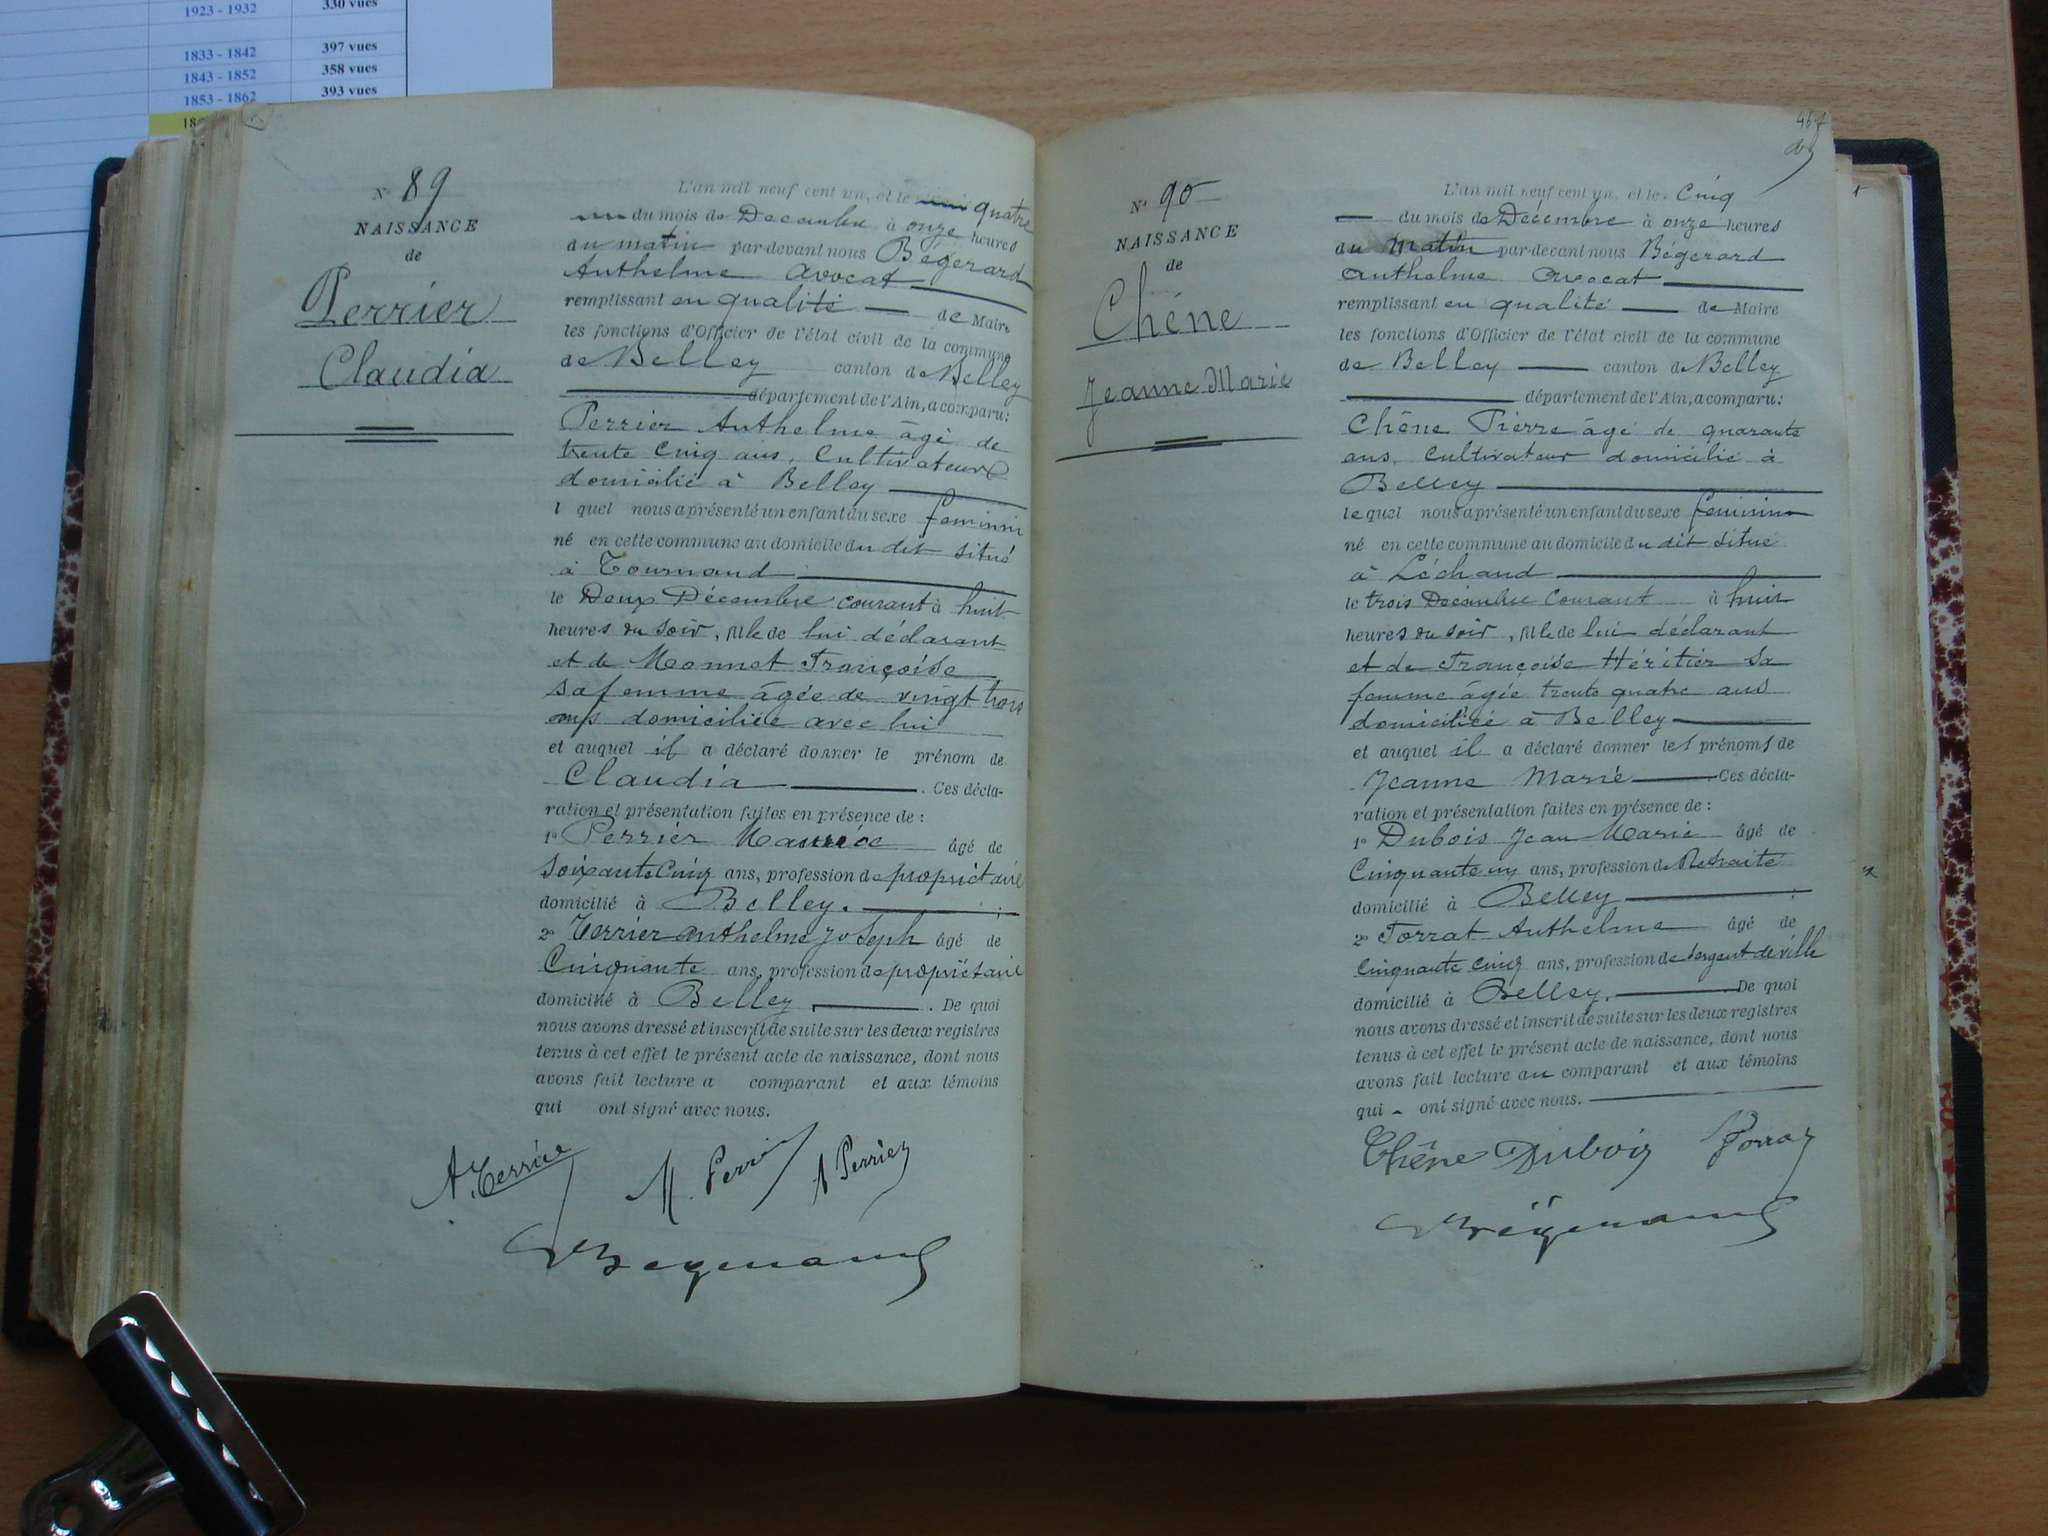 1923 - 1932 330 vues
1833 - 1842 397 vues
1843 - 1852 358 vues
1853 - 1862 393 vues
N° 89
NAISSANCE
de
Perrier
Claudia
L'an mil neuf cent un, et le quatre
du mois de Decembre à onze heures
du matin par-devant nous Bégerard
Anthelme avocat
remplissant en qualité de Maire
les fonctions d'Officier de l'état civil de la commune
de Belley canton de Belley
département de l'Ain, a comparu:
Perrier Anthelme âgé de
trente cinq ans, Cultivateur
domicilié à Belley
l quel nous a présenté un enfant du sexe feminin
né en cette commune au domicile du dit situé
à
le Deux Décembre courant à huit
heures du soir, fille de lui déclarant
et de Monnet Françoise
sa femme âgée de vingt trois
ans domiciliée avec lui
et auquel il a déclaré donner le prénom de
Claudia . Ces décla-
ration et présentation faites en présence de :
1° Perrier Maurice âgé de
soixante Cinq ans, profession de propriétaire
domicilié à Belley. ;
2° Terrier Anthelme Joseph âgé de
Cinquante ans, profession de propriétaire
domicilié à Belley . De quoi
nous avons dressé et inscrit de suite sur les deux registres
tenus à cet effet le présent acte de naissance, dont nous
avons fait lecture a comparant et aux témoins
qui ont signé avec nous.
M. Perrier A Perrier
N° 90
NAISSANCE
de
Chêne
Jeanne Marie
L'an mil neuf cent un, et le Cinq
du mois de Décembre à onze heures
du Matin par-devant nous Bégerard
Anthelme Avocat
remplissant en qualité de Maire
les fonctions d'Officier de l'état civil de la commune
de Belley canton de Belley
département de l'Ain, a comparu:
Chêne Pierre âgé de quarante
ans, Cultivateur domicilié à
Belley
lequel nous a présenté un enfant du sexe feminin
né en cette commune au domicile du dit situé
à
le trois Decembre Courant à huit
heures du soir, fille de lui déclarant
et de Françoise Héritier sa
femme âgée trente quatre ans
domiciliée à Belley
et auquel il a déclaré donner les prénoms de
Jeanne Marie Ces décla-
ration et présentation faites en présence de :
1° Dubois Jean Marie âgé de
Cinquante un ans, profession de Retraité
domicilié à Belley ;
2° Forrat Anthelme âgé de
Cinquante cinq ans, profession de sergent de ville
domicilié à Belley. De quoi
nous avons dressé et inscrit de suite sur les deux registres
tenus à cet effet le présent acte de naissance, dont nous
avons fait lecture au comparant et aux témoins
qui ont signé avec nous.
Chêne Dubois